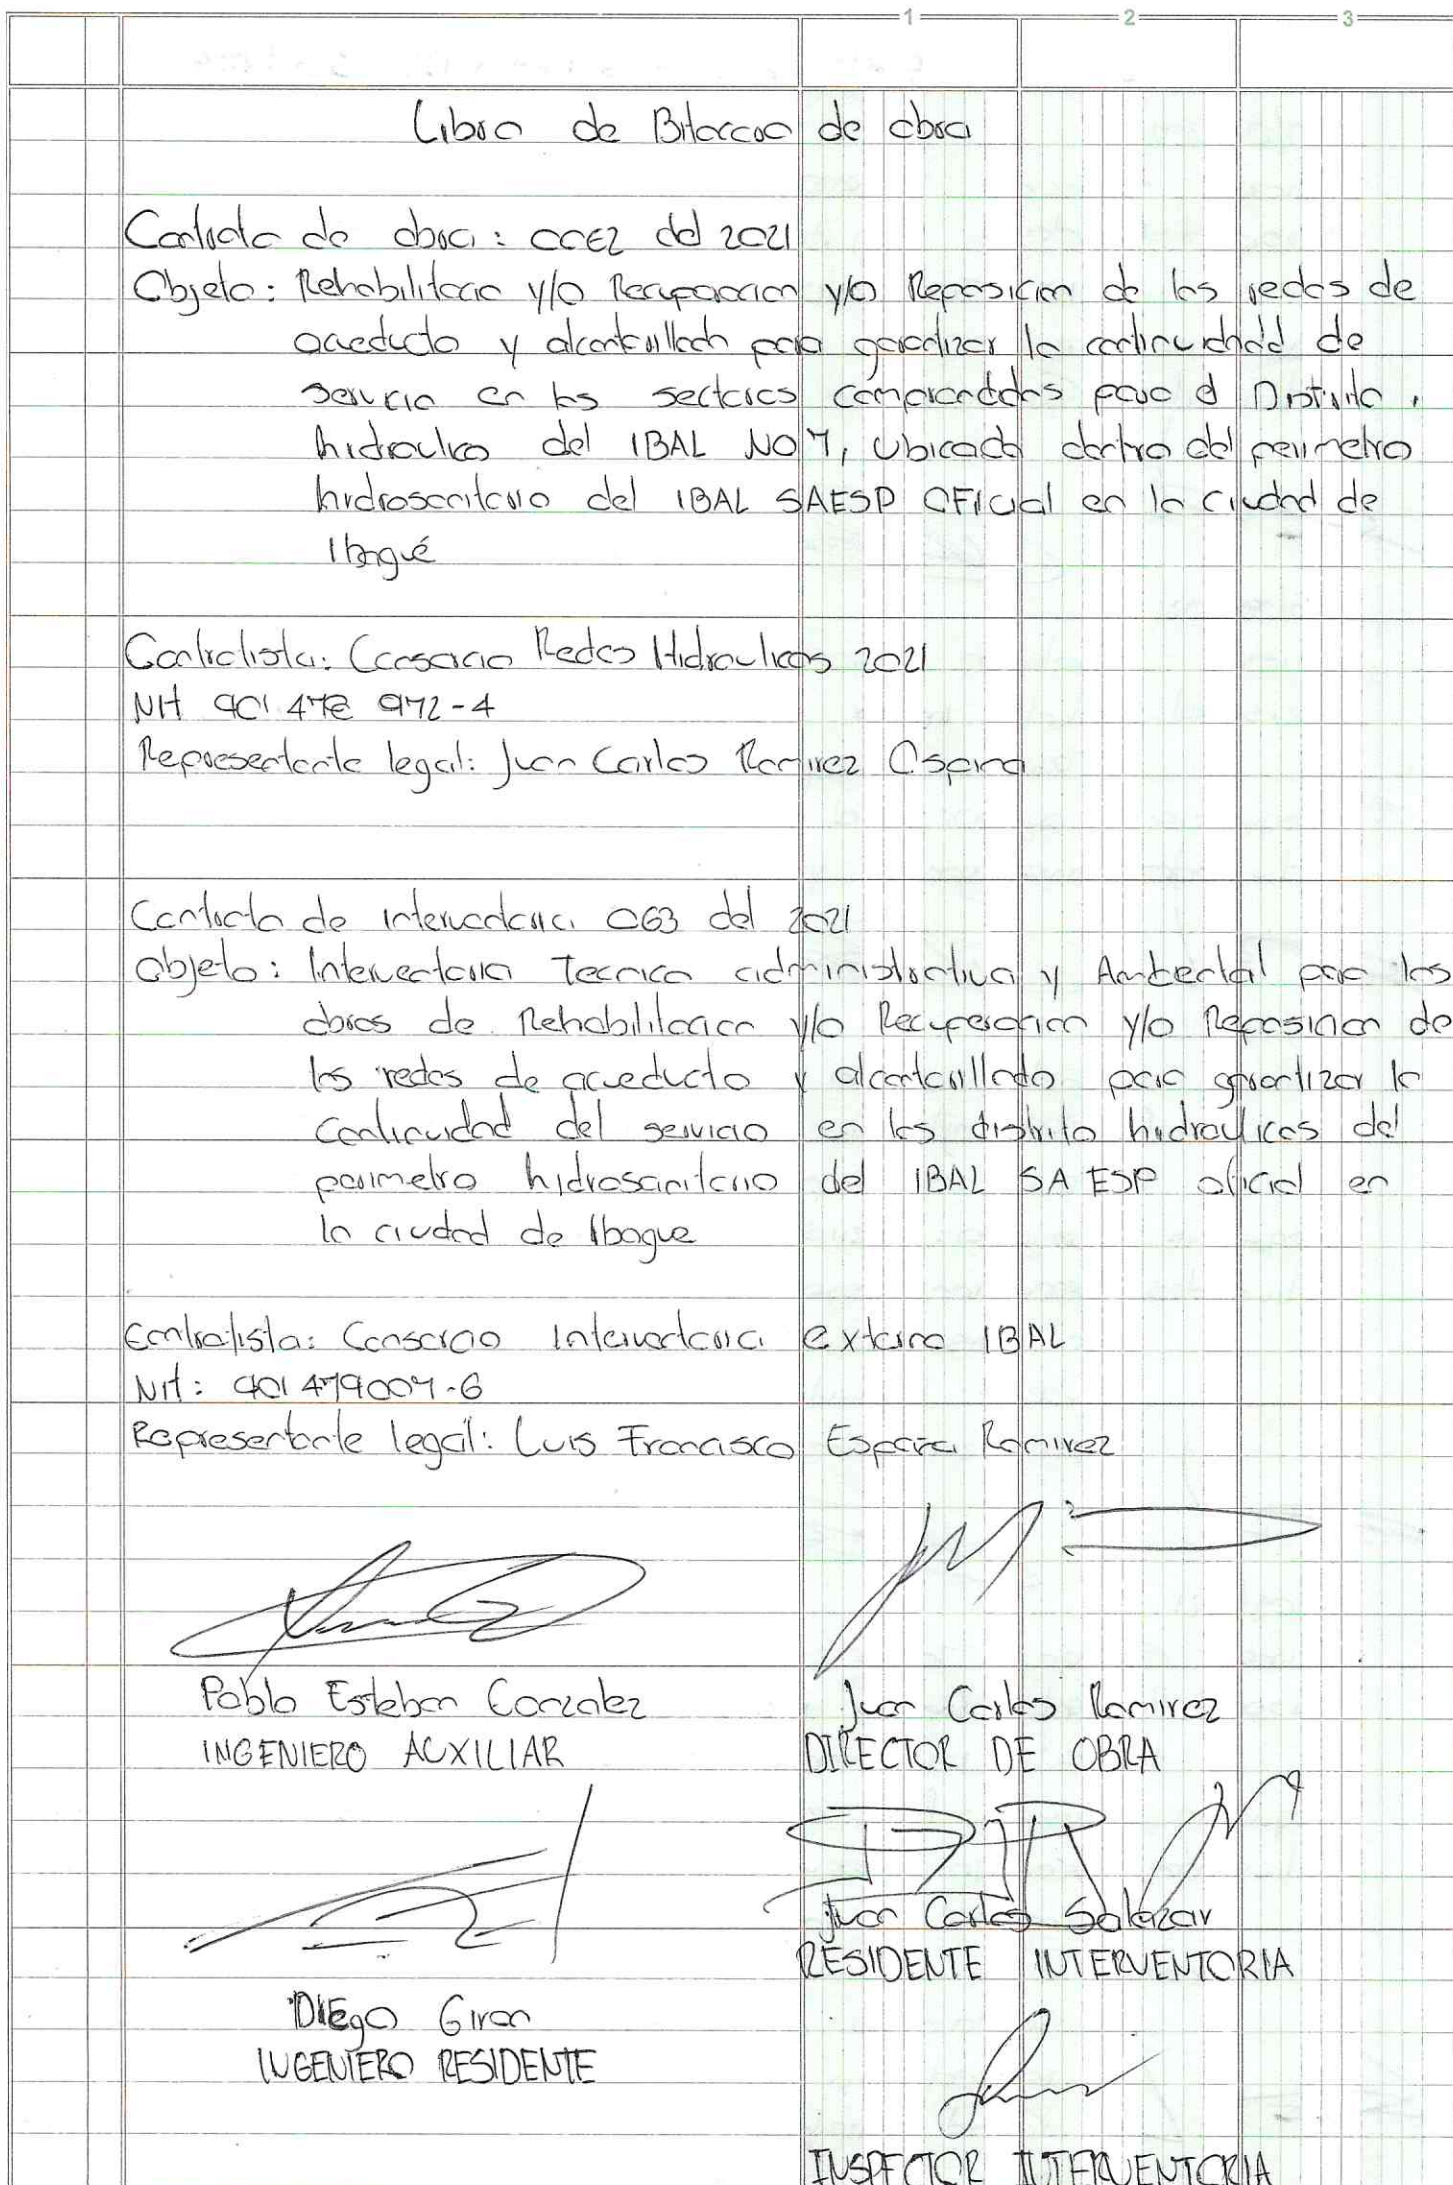 1 2 3
Libro de Bitacora de obra
Contrato de obra: 0062 del 2021
Objeto: Rehabilitacio y/o Recuperacion y/o Reposicion de las redes de
acueducto y alcantarillado para garantizar la continuidad de
servicio en los sectores comprendidos para el Distrito
hidraulico del IBAL NO 7, Ubicado dentro del perimetro
hidrosanitario del IBAL SAESP OFicial en la Ciudad de
Ibagué
Contratista: Consorcio Redes Hidraulicas 2021
Nit 901 478 972-4
Representante legal: Juan Carlos Ramirez Ospina
Contrato de interventoria 063 del 2021
Objeto: Interventoria Tecnica administrativa y Ambiental para las
obras de Rehabilitacion y/o Recuperacion y/o Reposicion de
las redes de acueducto y alcantarillado para garantizar la
continuidad del servicio en los distrito hidraulicos del
perimetro hidrosanitario del IBAL SA ESP oficial en
la ciudad de Ibague
Contratista: Consorcio Interventoria externo IBAL
Nit: 901479007-6
Representante legal: Luis Francisco España Ramirez
Pablo Esteban Gonzalez Juan Carlos Ramirez
INGENIERO AUXILIAR DIRECTOR DE OBRA
Juan Carlos Salazar
RESIDENTE INTERVENTORIA
DIEgo Giron
INGENIERO RESIDENTE
INSPECTOR INTERVENTORIA